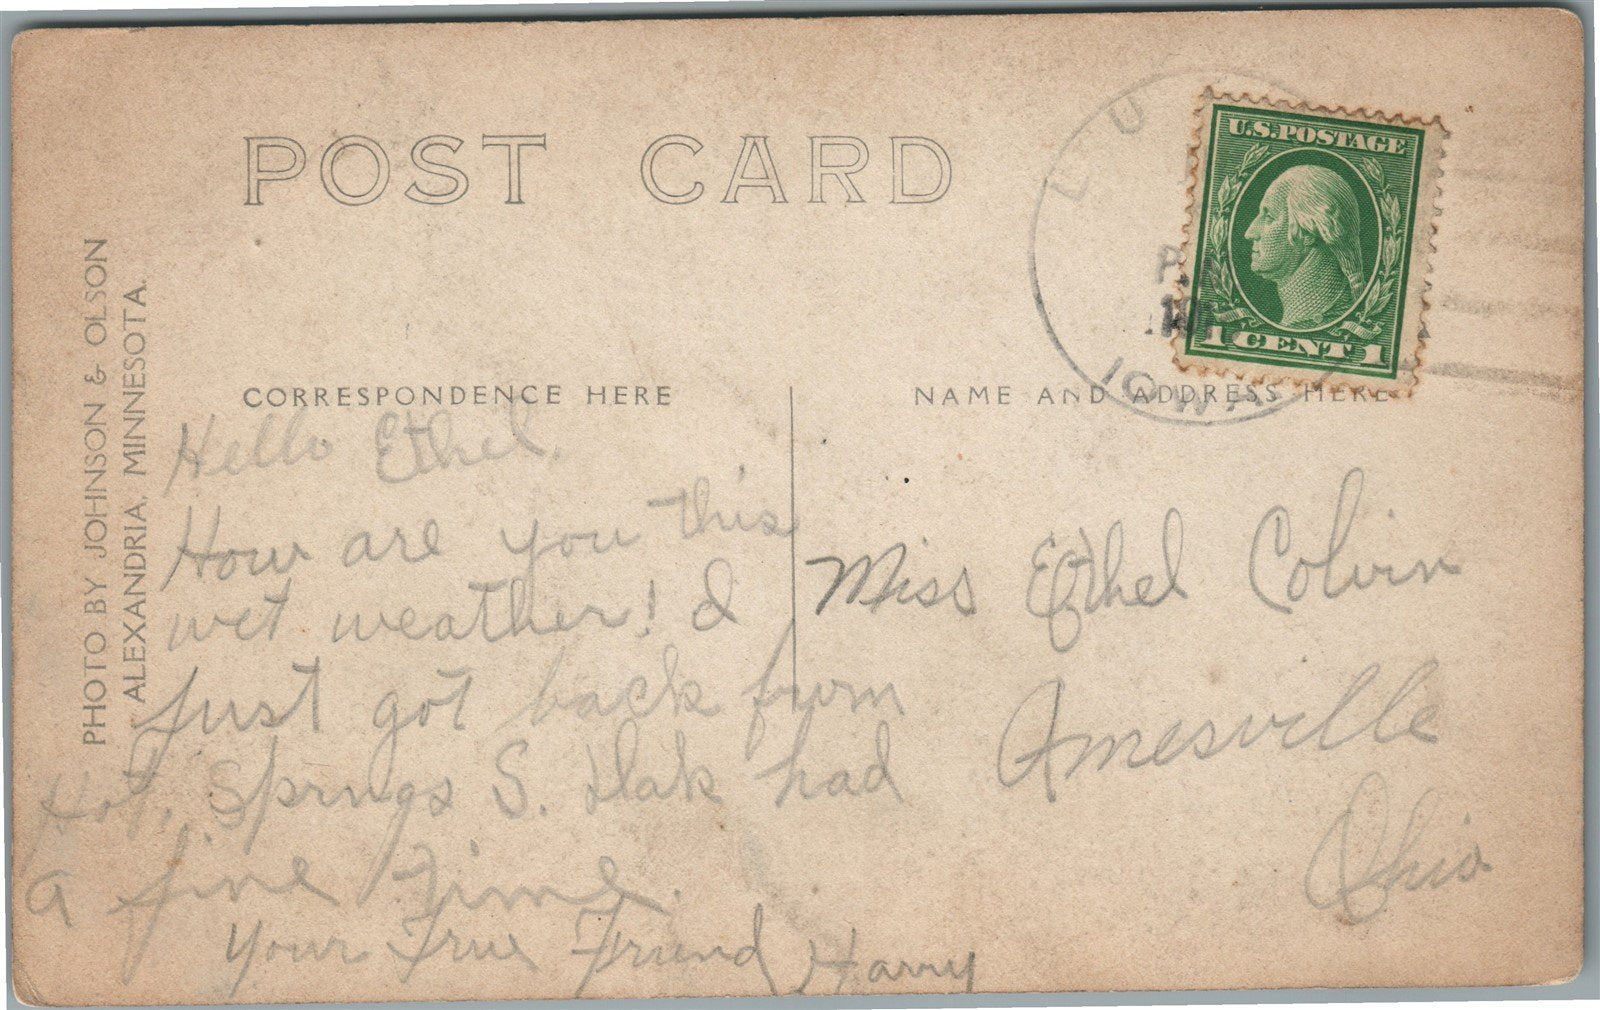 POST CARD
PHOTO BY JOHNSON & OLSON
ALEXANDRIA, MINNESOTA.
CORRESPONDENCE HERE
NAME AND ADDRESS HERE
U.S. POSTAGE
1 CENT 1
P.
IOWA
Hello Ethel.
How are you this
wet weather! I
just got back from
Hot. Springs S. Dak had
a fine Time.
Your True Friend Harry
Miss Ethel Colvin
Amesville
Ohio